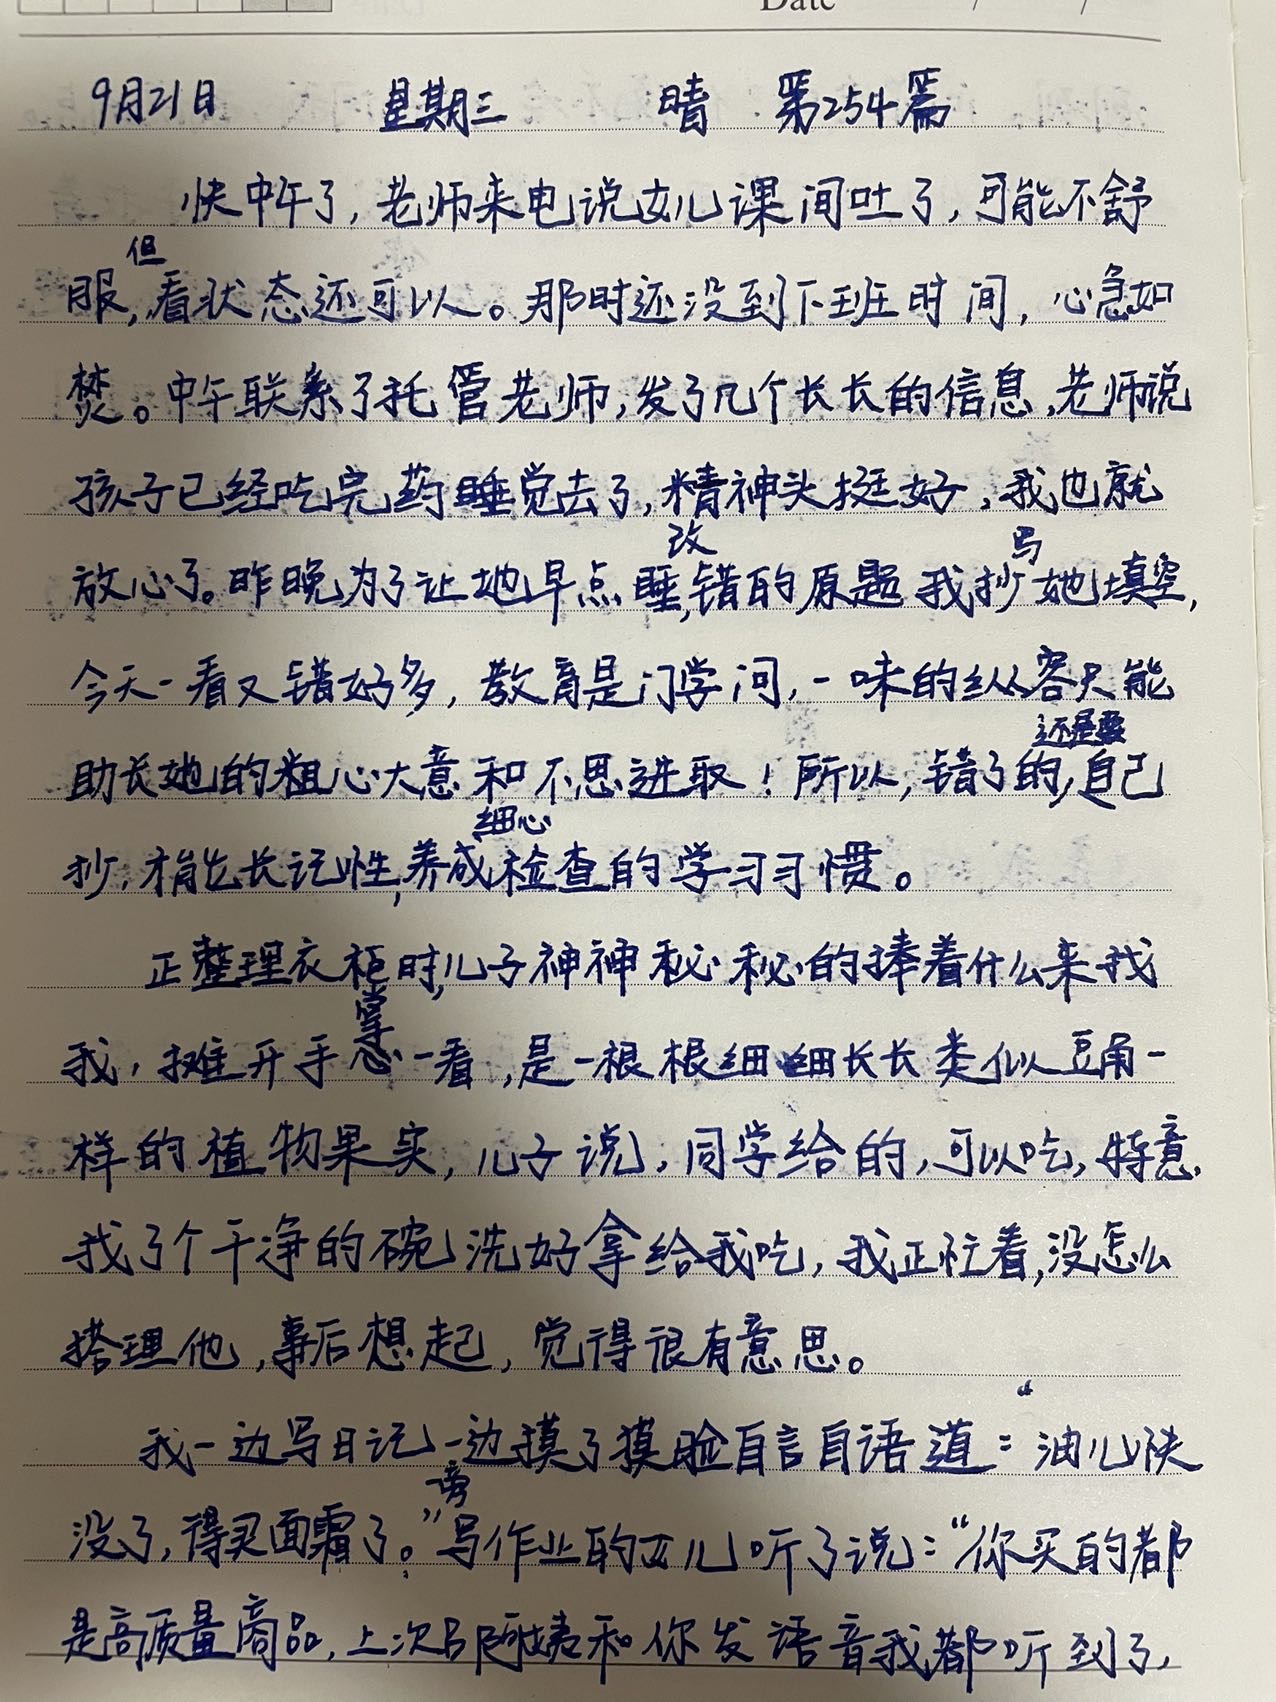 Date / /
9月21日 星期三 晴 第254篇
快中午了，老师来电说女儿课间吐了，可能不舒
服，但看状态还可以。那时还没到下班时间，心急如
焚。中午联系了托管老师，发了几个长长的信息，老师说
孩子已经吃完药睡觉去了，精神头挺好，我也就
放心了。昨晚为了让她早点睡，改错的原题我抄写她填空，
今天一看又错好多，教育是门学问，一味的纵容只能
助长她的粗心大意和不思进取！所以，错了的，还是要自己
抄，才能长记性，养成细心检查的学习习惯。
正整理衣柜时，儿子神神秘秘的捧着什么来找
我，摊开手掌心一看，是一根根细细长长类似豆角一
样的植物果实，儿子说，同学给的，可以吃，特意
找了个干净的碗洗好拿给我吃，我正忙着，没怎么
搭理他，事后想起，觉得很有意思。
我一边写日记一边摸了摸脸自言自语道：“油儿快
没了，得买面霜了。”旁写作业的女儿听了说：“你买的都
是高质量商品，上次吕阿姨和你发语音我都听到了，